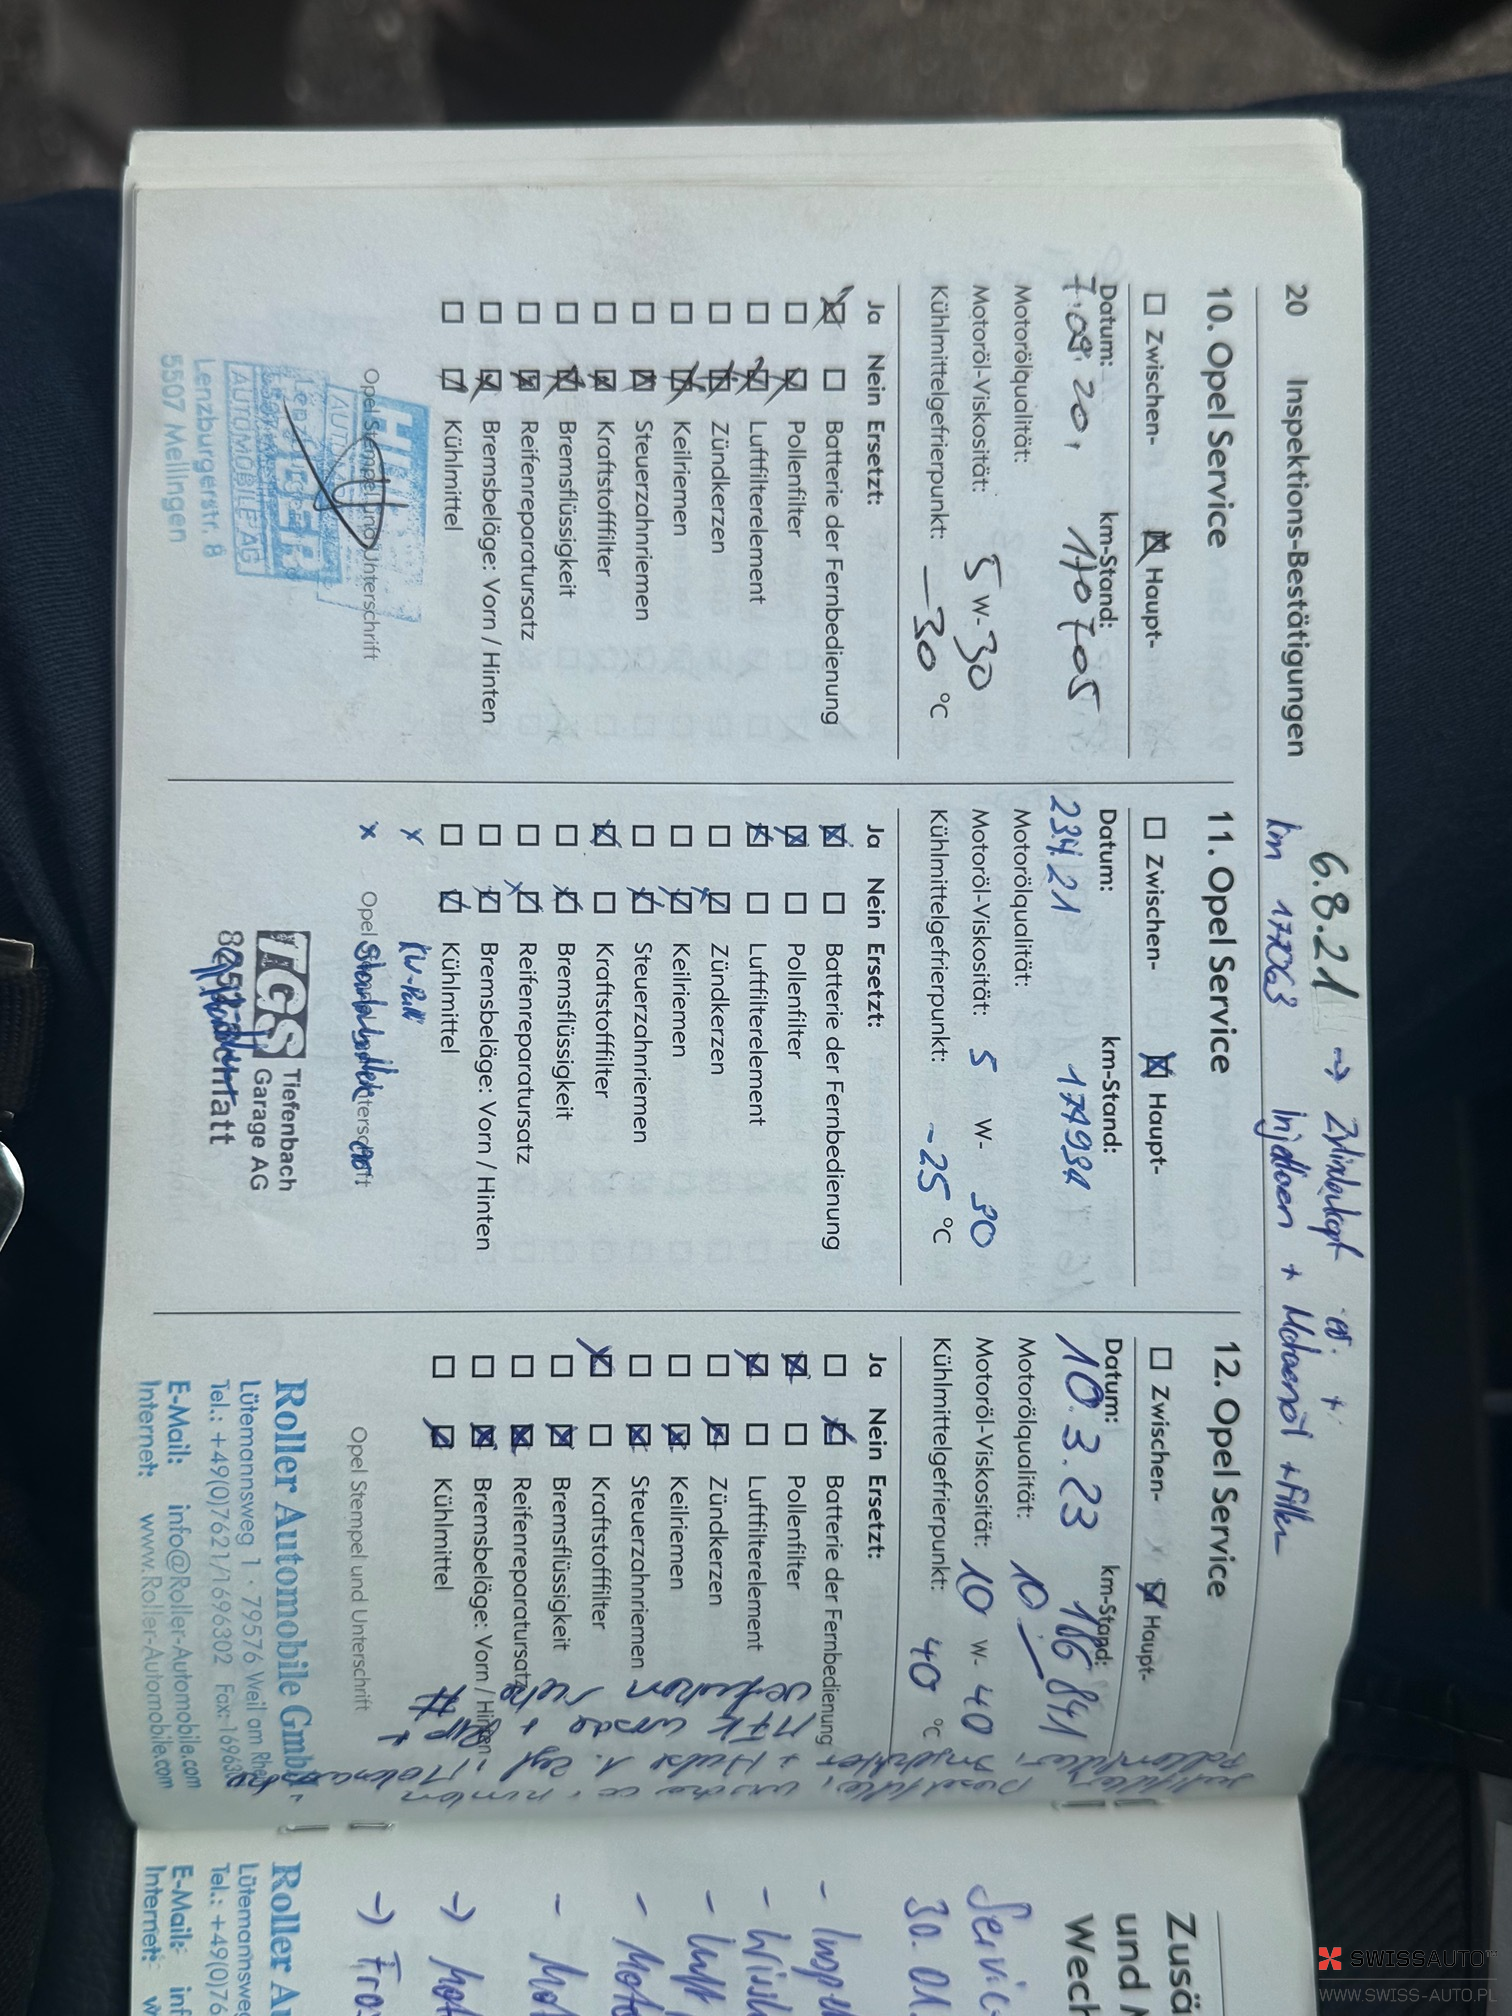 20 Inspektions-Bestätigungen
6.8.21 → Zylinderkopf + 
km 177063 Injektoren + Motorenöl + Filter
10. Opel Service
Zwischen- Haupt-
Datum: km-Stand:
7.09.20, 170705
Motorölqualität:
Motoröl-Viskosität: 5 W- 30
Kühlmittelgefrierpunkt: -30 °C
Ja Nein Ersetzt:
Batterie der Fernbedienung
Pollenfilter
Luftfilterelement
Zündkerzen
Keilriemen
Steuerzahnriemen
Kraftstofffilter
Bremsflüssigkeit
Reifenreparatursatz
Bremsbeläge: Vorn / Hinten
Kühlmittel
Opel Stempel und Unterschrift
AUTOMOBILE AG
Lenzburgerstr. 8
5507 Mellingen
11. Opel Service
Zwischen- Haupt-
Datum: km-Stand:
23.4.21
Motorölqualität:
Motoröl-Viskosität: 5 W- 30
Kühlmittelgefrierpunkt: -25 °C
Ja Nein Ersetzt:
Batterie der Fernbedienung
Pollenfilter
Luftfilterelement
Zündkerzen
Keilriemen
Steuerzahnriemen
Kraftstofffilter
Bremsflüssigkeit
Reifenreparatursatz
Bremsbeläge: Vorn / Hinten
Kühlmittel
Opel
TGS Tiefenbach
Garage AG
12. Opel Service
Zwischen- Haupt-
Datum: km-Stand:
10.3.23 186841
Motorölqualität: 10
Motoröl-Viskosität: 10 W- 40
Kühlmittelgefrierpunkt: 40 °C
Ja Nein Ersetzt:
Batterie der Fernbedienung
Pollenfilter
Luftfilterelement
Zündkerzen
Keilriemen
Steuerzahnriemen
Kraftstofffilter
Bremsflüssigkeit
Reifenreparatursatz
Bremsbeläge: Vorn / Hinten
Kühlmittel
Opel Stempel und Unterschrift
Roller Automobile GmbH
Lütemannsweg 1 · 79576 Weil am Rhein
Tel.: +49(0)7621/1696302 Fax:-169630
E-Mail: info@Roller-Automobile.com
Internet: www.Roller-Automobile.com
Zusä
und
Wech
Servic
30.01.
Roller A
Lütemannsweg
Tel.: +49(0)76
E-Mail: inf
Internet: w
SWISSAUTO
WWW.SWISS-AUTO.PL